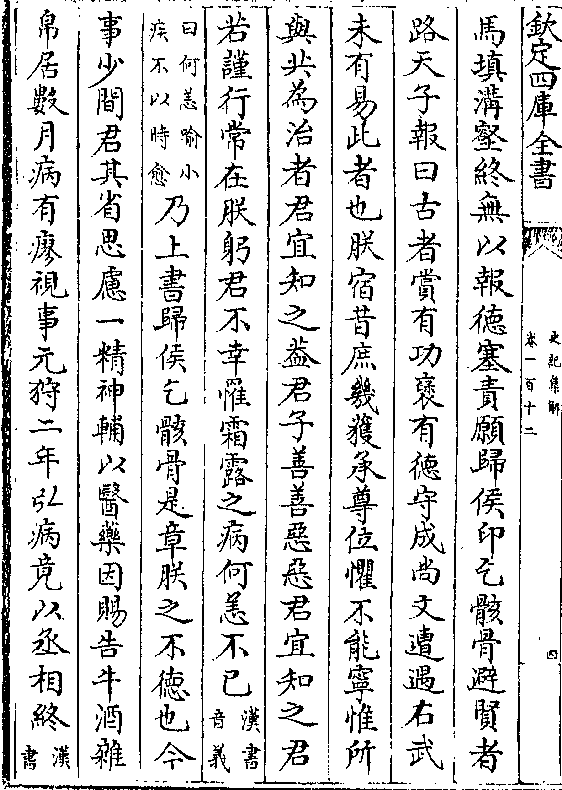 欽定四庫全書
史記集解
卷一百十二
四
馬填溝壑終無以報德塞責願歸侯印乞骸骨避賢者
路天子報曰古者賞有功襃有德守成尚文遭遇右武
未有易此者也朕宿昔庶幾獲承尊位懼不能寧惟所
與共為治者君宜知之葢君子善善惡惡君宜知之君
若謹行常在朕躬君不幸罹霜露之病何恙不已漢書音義
曰何恙喻小疾不以時愈乃上書歸侯乞骸骨是章朕之不德也今
事少間君其省思慮一精神輔以醫藥因賜告牛酒雜
帛居數月病有瘳視事元狩二年弘病竟以丞相終漢書